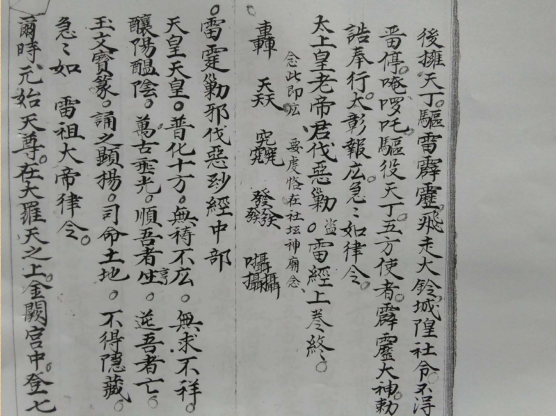 後擁天丁。驅雷霹靂。飛走大鈴。城隍社令。不得
啚停。唵㖮吒。驅役天丁。五方使者。霹靂大神。勅
誥奉行。大彰報応。急〻如律令。
太上皇老帝君伐惡勦盜雷經上卷終。
念此即応 要虔恪在社坛神廟念
轟 
雷霆勦邪伐惡玅經中部
天皇天皇。普化十方。無禱不応。無求不祥。
釀陽醞陰。萬古垂光。順吾者生。逆吾者亡。
玉文寶篆。誦之顯揚。司命土地。不得隱藏。
急〻如 雷祖大帝律令。
爾時。元始天尊。在大羅天之上。金闕宮中。登七